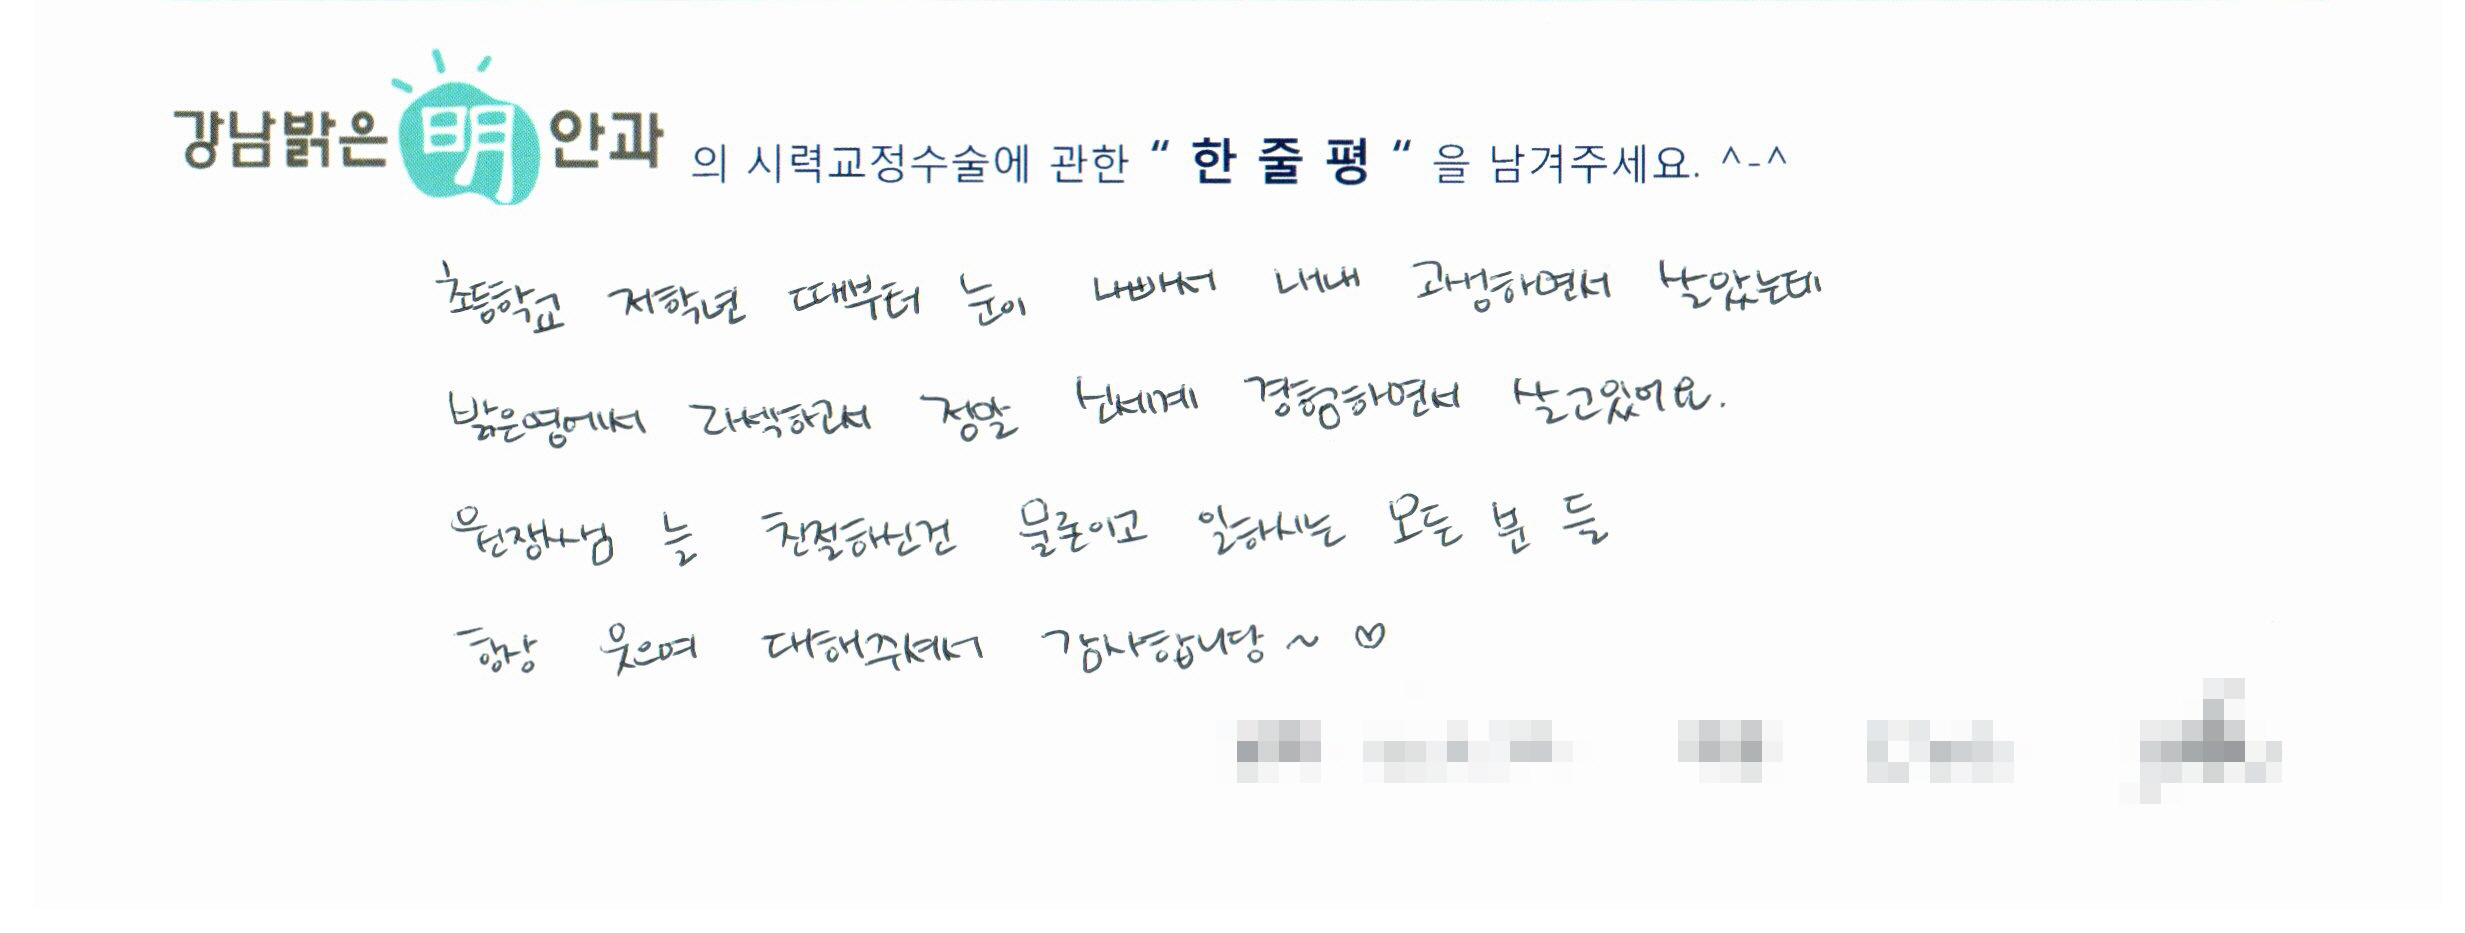 강남밝은明안과 의 시력교정수술에 관한 “ 한 줄 평 “ 을 남겨주세요. ^-^
초등학교 저학년 때부터 눈이 나빠서 내내 고생하면서 살았는데
밝은명에서 라섹하고서 정말 신세계 경험하면서 살고있어요.
원장샘님 늘 친절하신건 물론이고 일하시는 모든 분 들
항상 웃으며 대해주셔서 감사합니당~ ♡